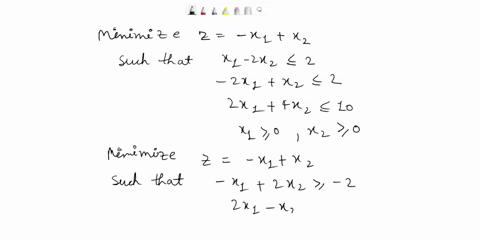 Minimize z = -x₁ + x₂
such that x₁ - 2x₂ ≤ 2
-2x₁ + x₂ ≤ 2
2x₁ + 4x₂ ≤ 10
x₁ ≥ 0 , x₂ ≥ 0
Minimize z = -x₁ + x₂
such that -x₁ + 2x₂ ≥ -2
2x₁ - x₂